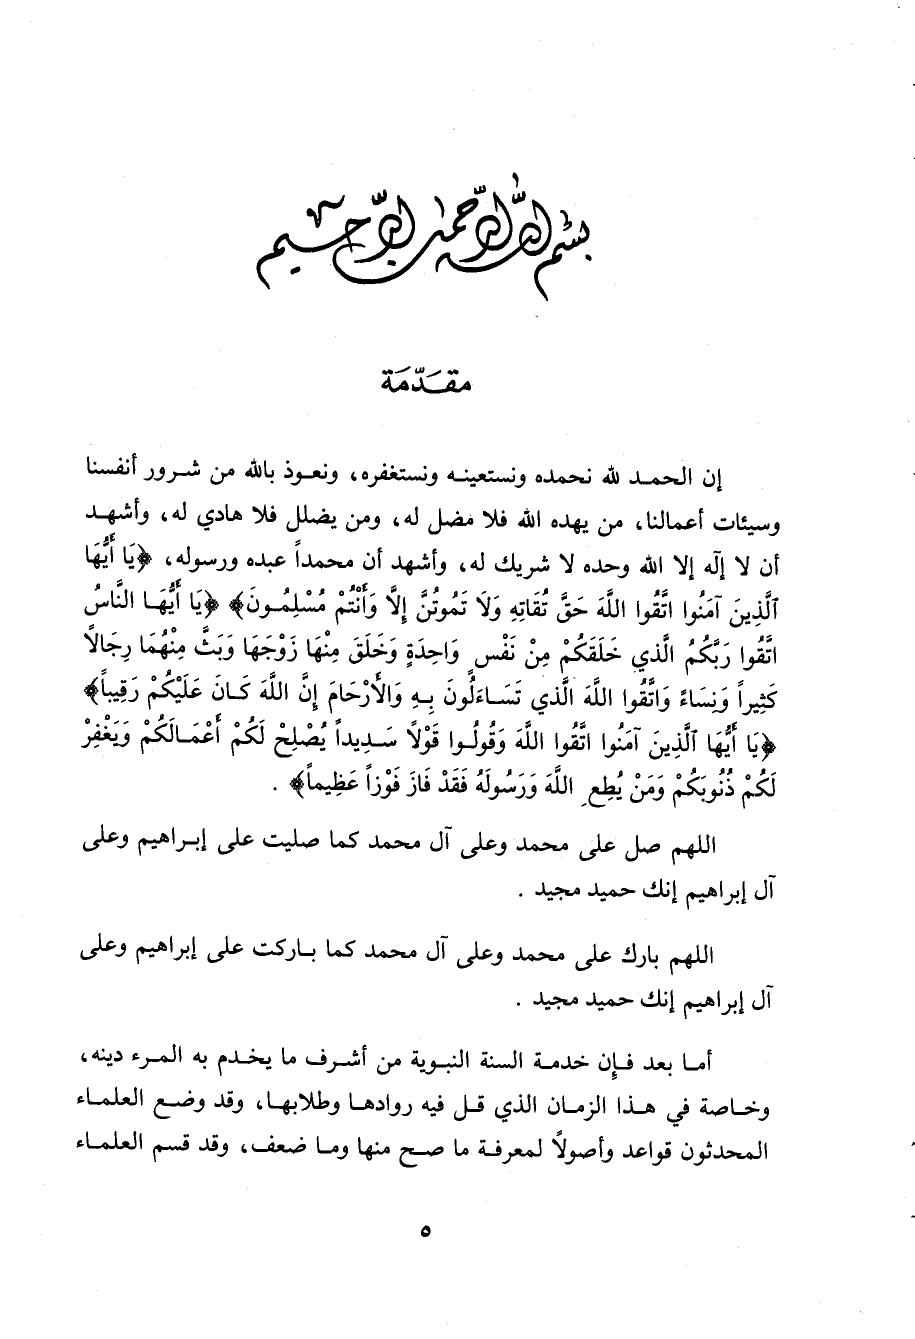 بسم الله الرحمن الرحيم
مقدّمة
إن الحمد لله نحمده ونستعينه ونستغفره، ونعوذ بالله من شرور أنفسنا
وسيئات أعمالنا، من يهده الله فلا مضل له، ومن يضلل فلا هادي له، وأشهد
أن لا إله إلا الله وحده لا شريك له، وأشهد أن محمداً عبده ورسوله، ﴿يَا أَيُّهَا
ٱلَّذِينَ آمَنُوا اتَّقُوا اللَّهَ حَقَّ تُقَاتِهِ وَلَا تَمُوتُنَّ إِلَّا وَأَنْتُمْ مُسْلِمُونَ﴾ ﴿يَا أَيُّهَا النَّاسُ
اتَّقُوا رَبَّكُمُ الَّذي خَلَقَكُمْ مِنْ نَفْسٍ وَاحِدَةٍ وَخَلَقَ مِنْهَا زَوْجَهَا وَبَثَّ مِنْهُمَا رِجَالاً
كَثِيراً وَنِسَاءً وَاتَّقُوا اللَّهَ الَّذي تَسَاءَلُونَ بِهِ وَالأَرْحَامَ إِنَّ اللَّهَ كَانَ عَلَيْكُمْ رَقِيباً﴾
﴿يَا أَيُّهَا ٱلَّذِينَ آمَنُوا اتَّقُوا اللَّهَ وَقُولُوا قَوْلاً سَدِيداً يُصْلِحْ لَكُمْ أَعْمَالَكُمْ وَيَغْفِرْ
لَكُمْ ذُنُوبَكُمْ وَمَنْ يُطِعِ اللَّهَ وَرَسُولَهُ فَقَدْ فَازَ فَوْزاً عَظِيماً﴾ .
اللهم صل على محمد وعلى آل محمد كما صليت على إبراهيم وعلى
آل إبراهيم إنك حميد مجيد .
اللهم بارك على محمد وعلى آل محمد كما باركت على إبراهيم وعلى
آل إبراهيم إنك حميد مجيد .
أما بعد فإن خدمة السنة النبوية من أشرف ما يخدم به المرء دينه،
وخاصة في هذا الزمان الذي قل فيه روادها وطلابها، وقد وضع العلماء
المحدثون قواعد وأصولاً لمعرفة ما صح منها وما ضعف، وقد قسم العلماء
٥